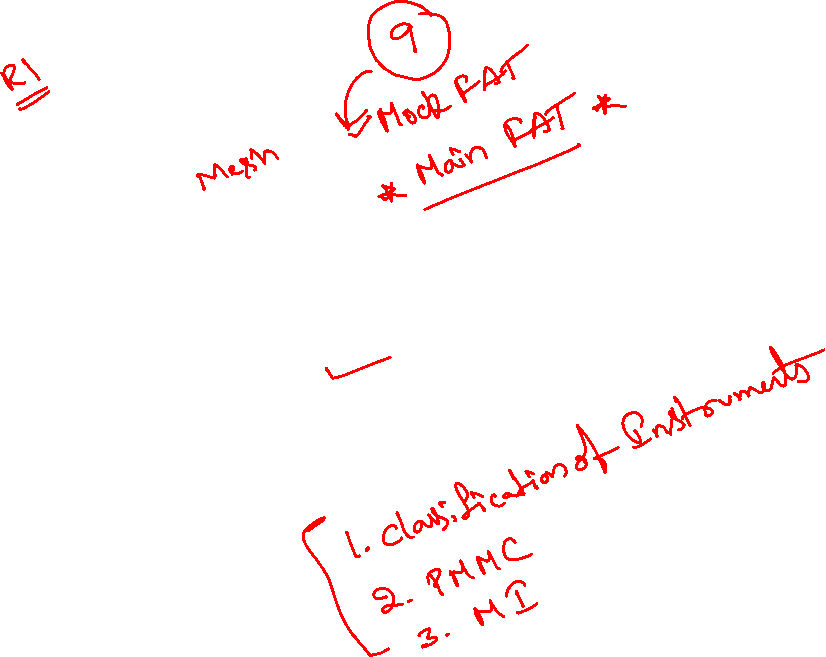 9
R1
Mock FAT
* Main FAT *
Mesh
1. Classification of Instruments
2. PMMC
3. MI